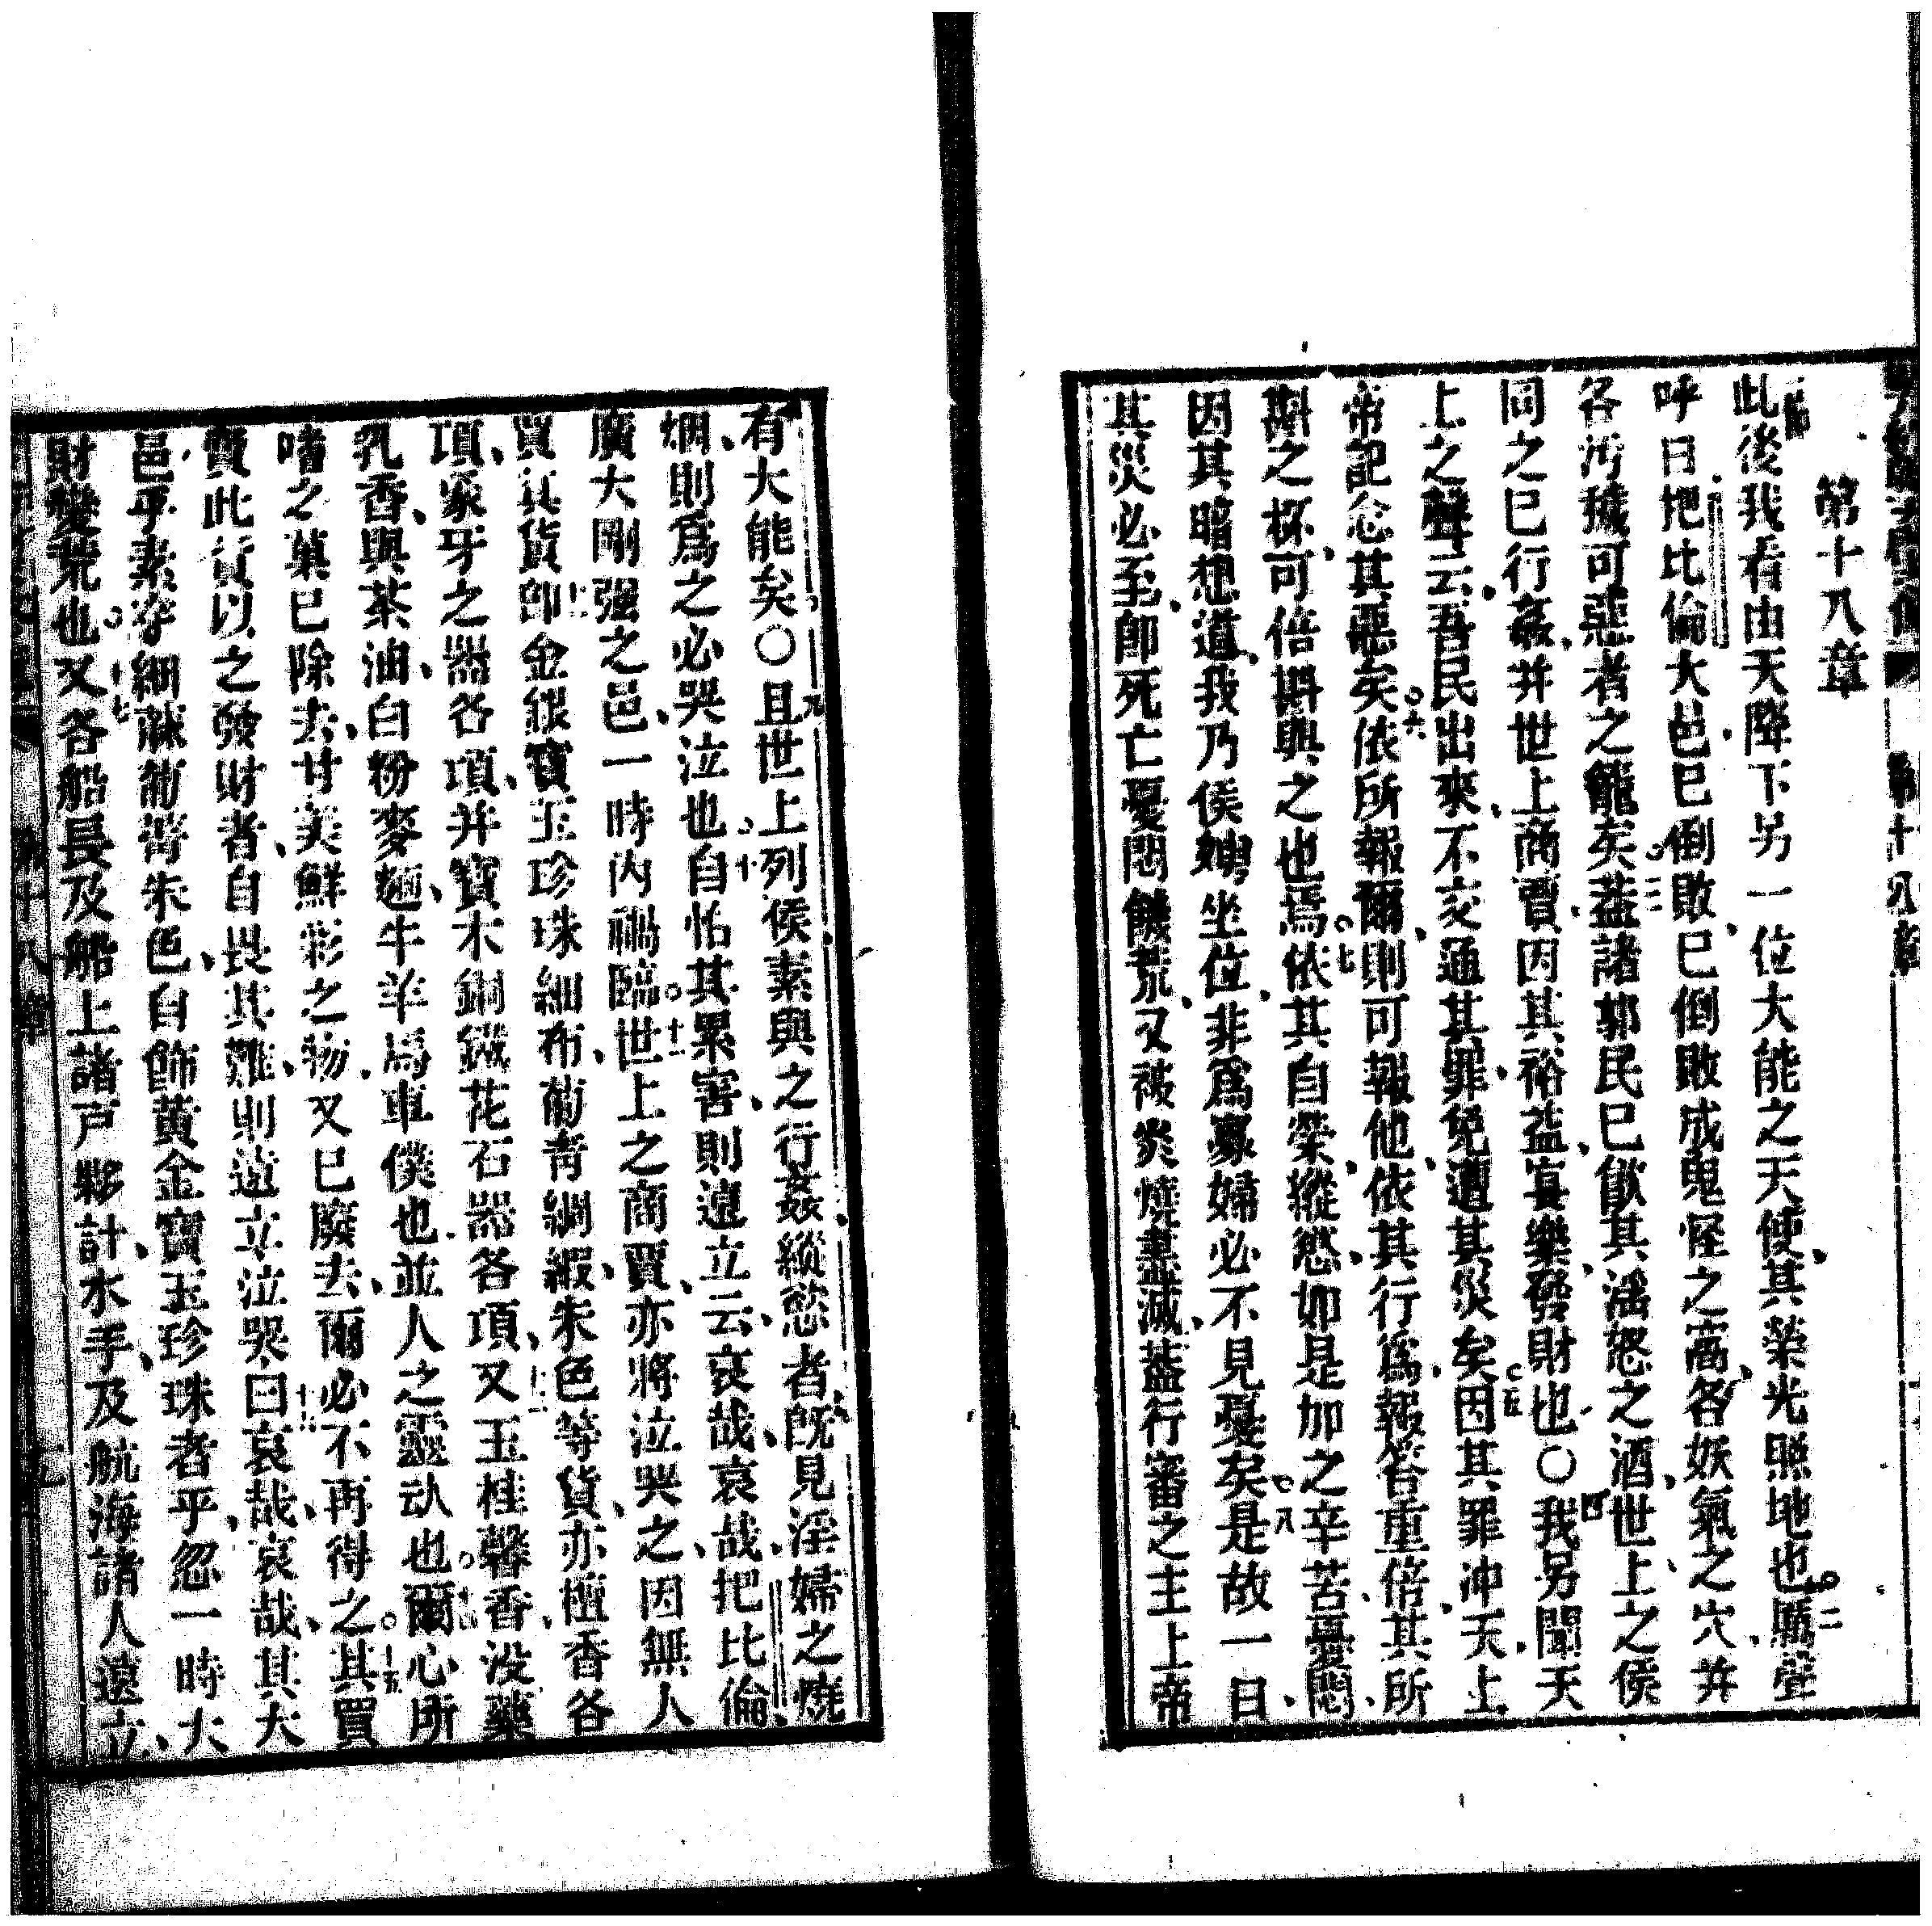 第十八章
此後我看由天降下另一位大能之天使其榮光照地也厲聲
呼曰把比倫大邑已倒敗已倒敗成鬼怪之窩各妖氣之穴并
各汚穢可惡者之籠矣蓋諸郭民已飲其淫怒之酒世上之侯
同之已行姦并世上商賈因其裕益宴樂發財也〇我另聞天
上之聲云吾民出來不交通其罪免遭其災矣因其罪沖天上
帝記念其惡矣依所報爾則可報他依其行爲報答重倍其所
斟之杯可倍斟與之也焉依其自榮縱慾如是加之辛苦憂悶
因其暗想道我乃侯娉坐位非爲寡婦必不見憂矣是故一日
其災必至卽死亡憂悶饑荒又被炎燒盡滅蓋行審之主上帝
有大能矣〇且世上列侯素與之行姦縱慾者旣見淫婦之燒
烟則爲之必哭泣也自怕其累害則遠立云哀哉哀哉把比倫
廣大剛强之邑一時內禍臨世上之商賈亦將泣哭之因無人
買其貨卽金銀寶玉珍珠細布葡青綢縀朱色等貨亦檀香各
項象牙之器各項并寶木銅鐵花石器各項又玉桂馨香没藥
乳香與茶油白粉麥麵牛羊馬車僕也並人之靈𠃔也爾心所
嗜之菓已除去甘美鮮彩之物又已廢去爾必不再得之其買
賣此貨以之發財者自畏其難則遠立泣哭曰哀哉哀哉其大
邑乎素穿細蔴葡青朱色自飾黃金寶玉珍珠者乎忽一時大
財變荒也又各船長及船上諸戸夥計水手及航海諸人遠立
第十八章